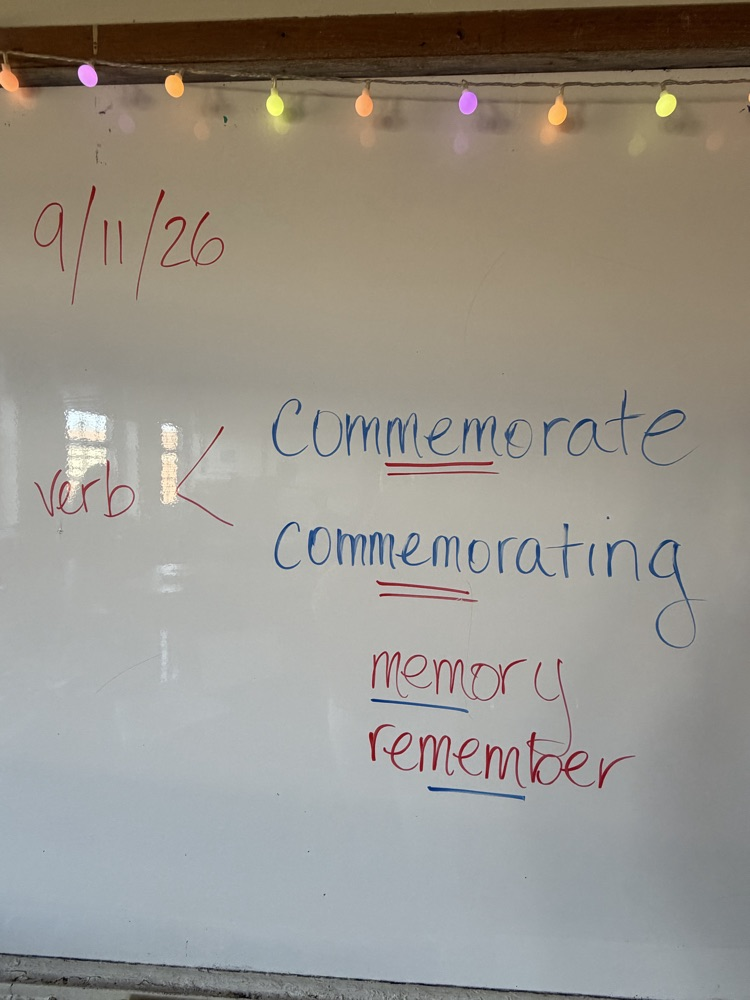 9/11/26
commemorate
verb <
commemorating
memory
remember